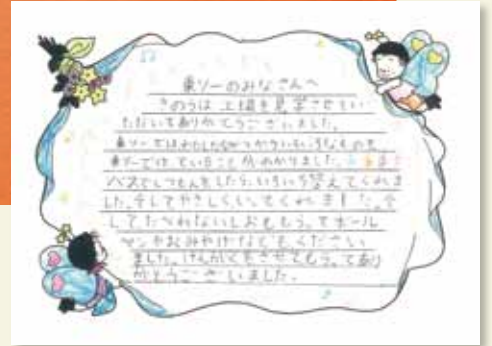 東ソーのみなさんへ
きのうは工場を見学させてい
ただいてありがとうございました。
東ソーではわたしたちがつかういろいろなものを
東ソーでは ていることがわかりました。
バスでしつもんをしたら、いろいろ答えてくれま
した。そしてやさしく してくれました。そ
して たべれないしおももらって ボール
ペンやおみやげなどもください
ました。けんがくをさせてもらってあり
がとうございました。